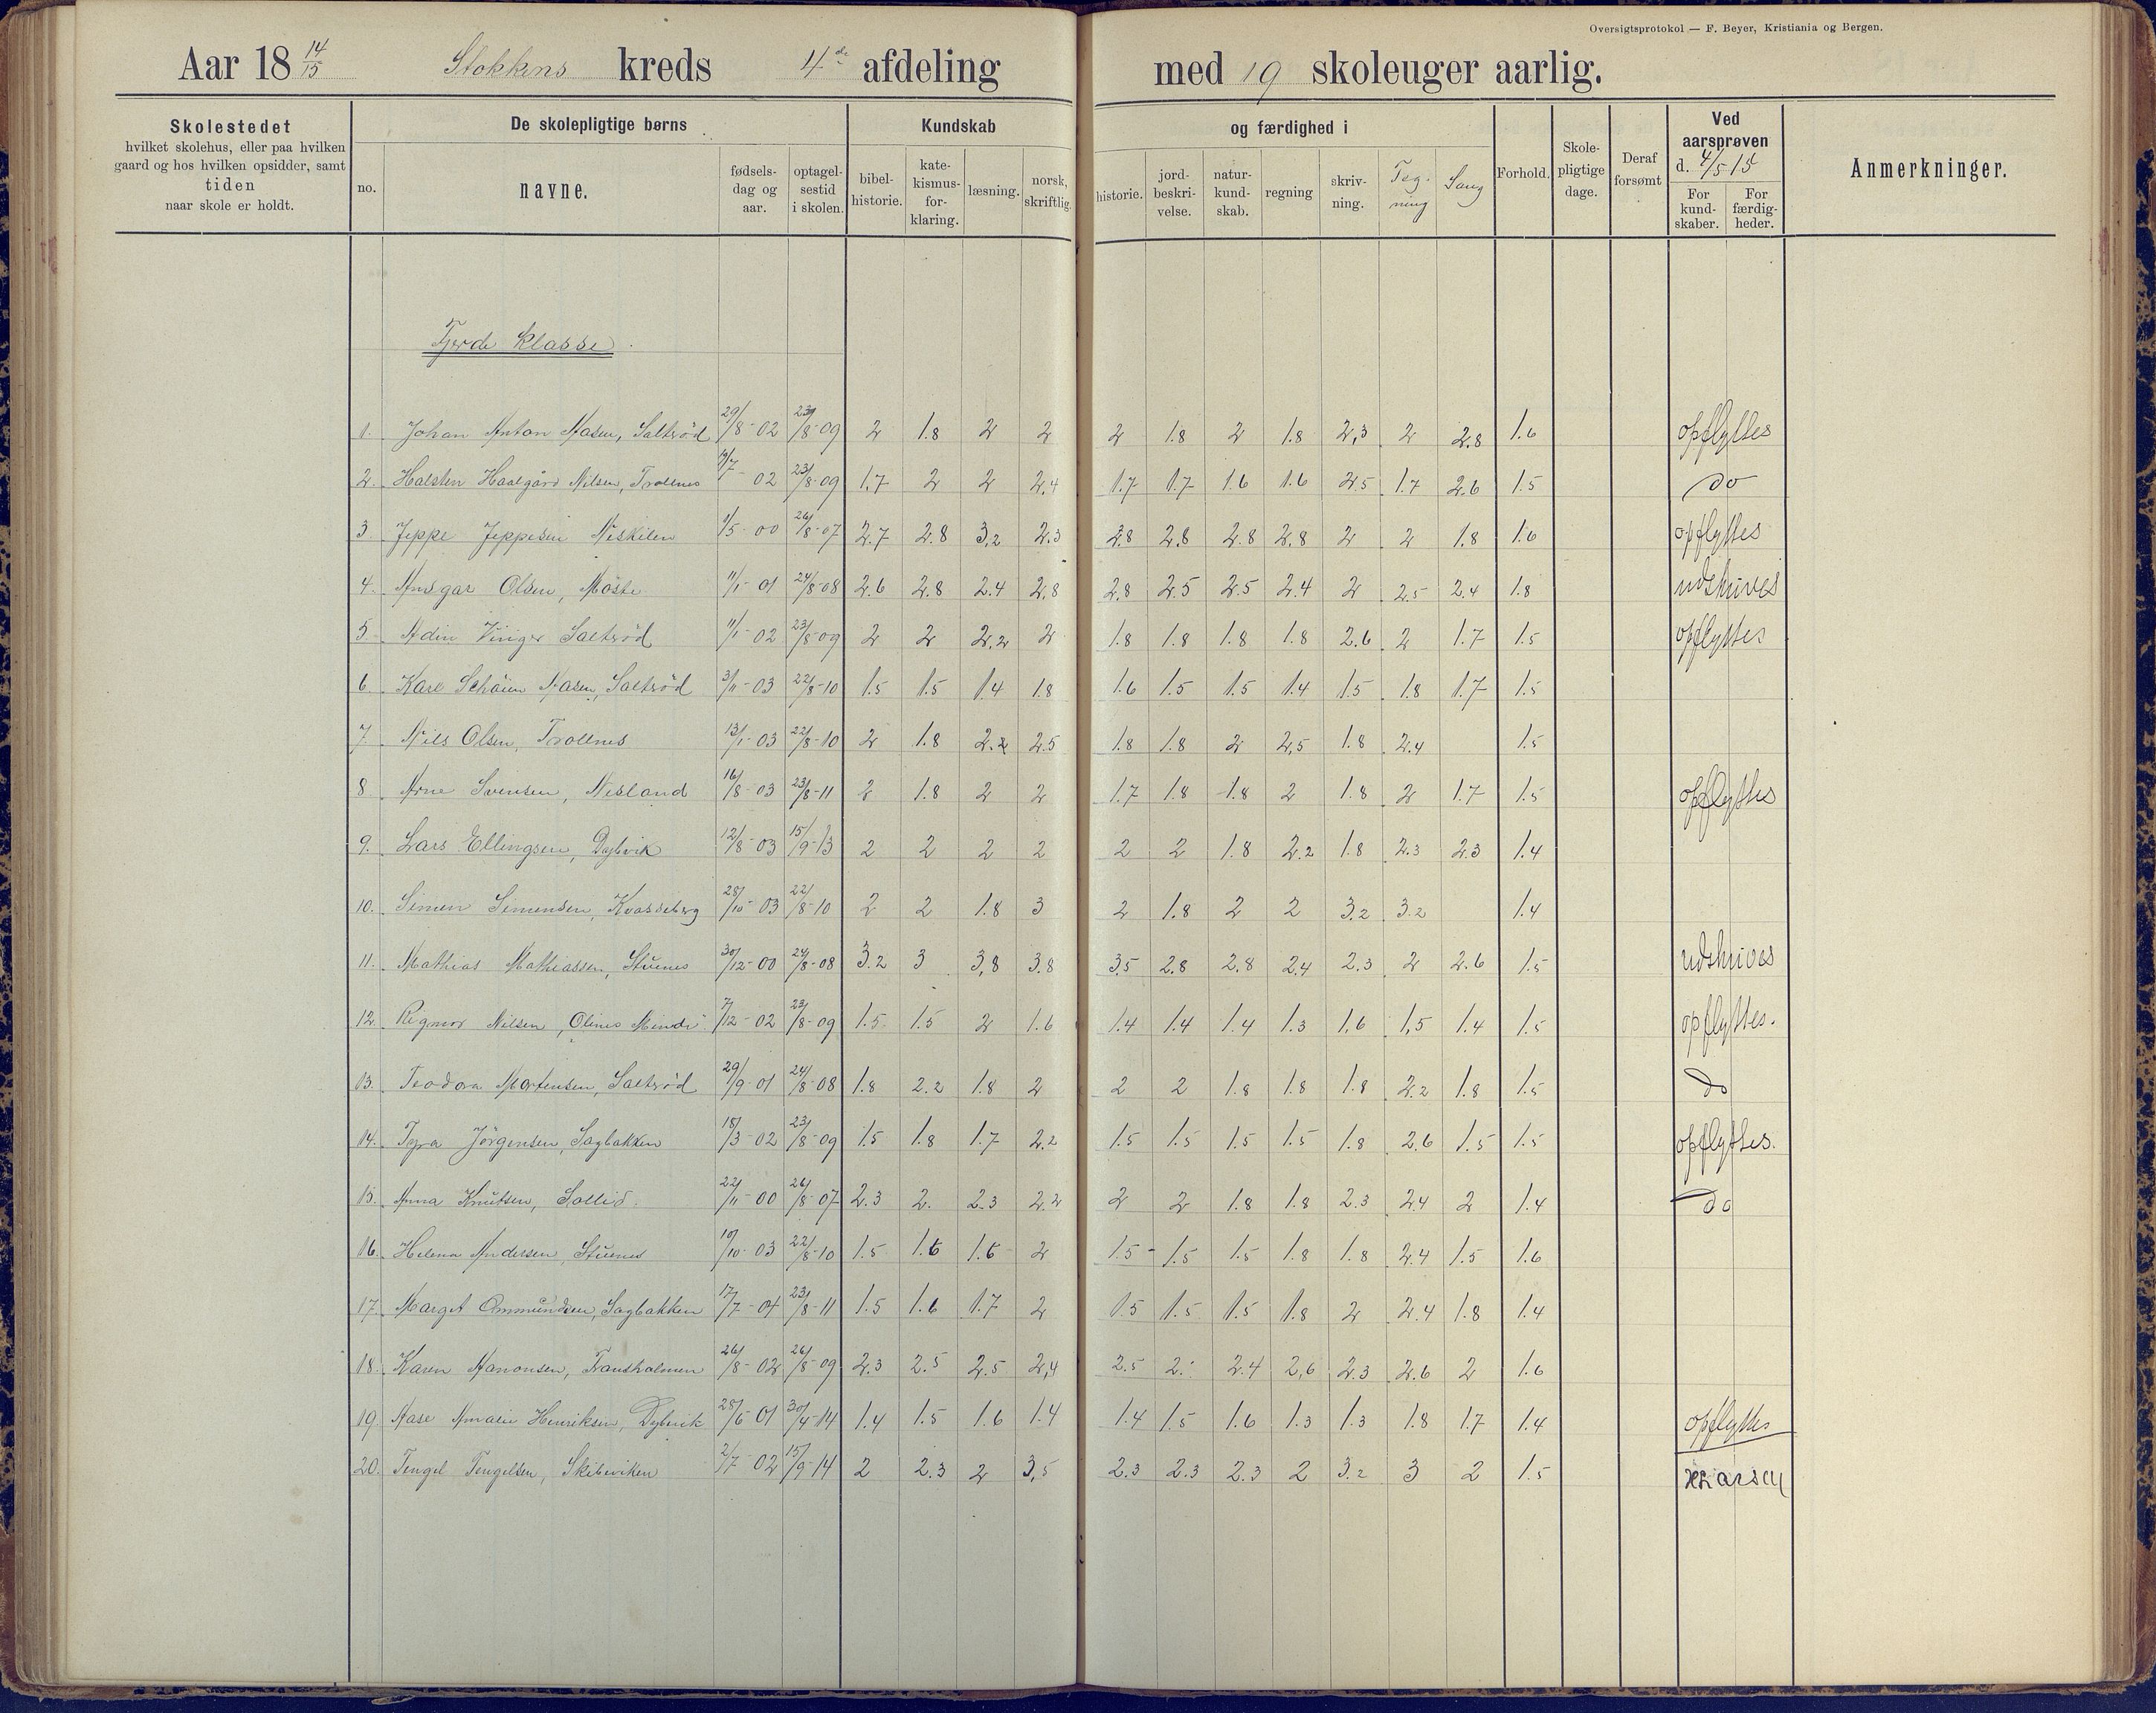 Oversigtsprotokol — F. Beyer, Kristiania og Bergen.
Aar 18 14/15 Stokkens kreds 4de afdeling med 19 skoleuger aarlig.
Skolestedet hvilket skolehus, eller paa hvilken gaard og hos hvilken opsidder, samt tiden naar skole er holdt.
De skolepligtige børns
no. navne. fødsels-dag og aar. optagel-sestid i skolen.
Kundskab og færdighed i
bibel-historie. kate-kismus-for-klaring. læsning. norsk, skriftlig. historie. jord-beskri-velse. natur-kund-skab. regning skriv-ning. Teg-ning Sang
Forhold. Skole-pligtige dage. Deraf forsømt
Ved aarsprøven d. 4/5 15
For kund-skaber. For færdig-heder.
Anmerkninger.
Fjerde klasse.
1. Johan Anton Aasen, Saltrød 29/8-02 23/8-09 2 1.8 2 2 2 1.8 2 1.8 2,3 2 2.8 1.6 opflyttes
2. Halsten Haalgård Nilsen, Trollnes 19/7-02 23/8-09 1.7 2 2 2.4 1.7 1.7 1.6 1.6 2.5 1.7 2.6 1.5 do
3. Jeppe Jeppesen Neskilen 1/5-00 26/8-07 2.7 2.8 3,2 2.3 2.8 2.8 2.8 2.8 2 2 1.8 1.6 opflyttes
4. Ansgar Olsen, Møste 11/1-01 24/8-08 2.6 2.8 2.4 2.8 2.8 2.5 2.5 2.4 2 2.5 2.4 1.8 udskrives
5. Adin Viiger Saltrød 11/1-02 23/8-09 2 2 2.2 2 1.8 1.8 1.8 1.8 2.6 2 1.7 1.5 opflyttes
6. Kare Schøien Aasen, Saltrød 3/11-03 22/8-10 1.5 1.5 1.4 1.8 1.6 1.5 1.5 1.4 1.5 1.8 1.7 1.5
7. Nils Olsen, Trollnes 13/1-03 22/8-10 2 1.8 2.2 2.5 1.8 1.8 2 2,5 1.8 2.4 1.5
8. Arne Svensen, Nesland 16/8-03 23/8-11 2 1.8 2 2 1.7 1.8 1.8 2 1.8 2 1.7 1.5 opflyttes
9. Lars Ellingsen, Dybvik 12/8-03 15/9-13 2 2 2 2 2 2 1.8 2.2 1.8 2.3 2.3 1.4
10. Simen Simensen, Kvasseberg 28/10-03 22/8-10 2 2 1.8 3 2 1.8 2 2 3.2 3.2 1.4
11. Mathias Mathiassen, Stuenes 30/12-00 24/8-08 3.2 3 3,8 3.8 3,5 2.8 2.8 2.4 2.3 2 2.6 1.5 udskrives
12. Rigmor Nilsen, Olines Minde 7/12-02 23/8-09 1.5 1.5 2 1.6 1.4 1.4 1.4 1.3 1,6 1,5 1.4 1.5 opflyttes.
13. Teodora Mortensen, Saltrød 29/9-01 24/8-08 1.8 2.2 1.8 2 2 2 1.8 1.8 1.8 2.2 1.8 1.5 do
14. Tyra Jörgensen, Sagbakken 18/3-02 23/8-09 1.5 1.8 1.7 2.2 1.5 1.5 1.5 1.5 1.8 2.6 1.5 1.5 opflyttes.
15. Anna Knutsen, Sollid. 22/11-00 26/8-07 2.3 2. 2.3 2.2 2 2 1.8 1.8 2.3 2.4 2 1.4 do
16. Helena Andersen, Stuenes 19/10-03 22/8-10 1.5 1.6 1.6 2 1.5 1.5 1.5 1.8 1.8 2.4 1.5 1.6
17. Margit Ommundsen, Sagbakken 17/7-04 23/8-11 1.5 1.6 1.7 2 1.5 1.5 1.5 1.8 2 2.4 1.8 1.4
18. Karen Aanonsen, Frausholmen 26/8-02 26/8-09 2.3 2.5 2.5 2,4 2.5 2. 2.4 2,6 2.3 2.6 2 1.6
19. Aase Amalie Henriksen, Dybvik 28/6-01 30/4-14 1.4 1.5 1.6 1.4 1.4 1.5 1.6 1.3 1.3 1.8 1.7 1.4 opflyttes
20. Tengel Tengelsen, Skibeviken 2/7-02 15/9-14 2 2.3 2 3,5 2.3 2.3 2.3 2 3.2 3 2 1.5 Larsen